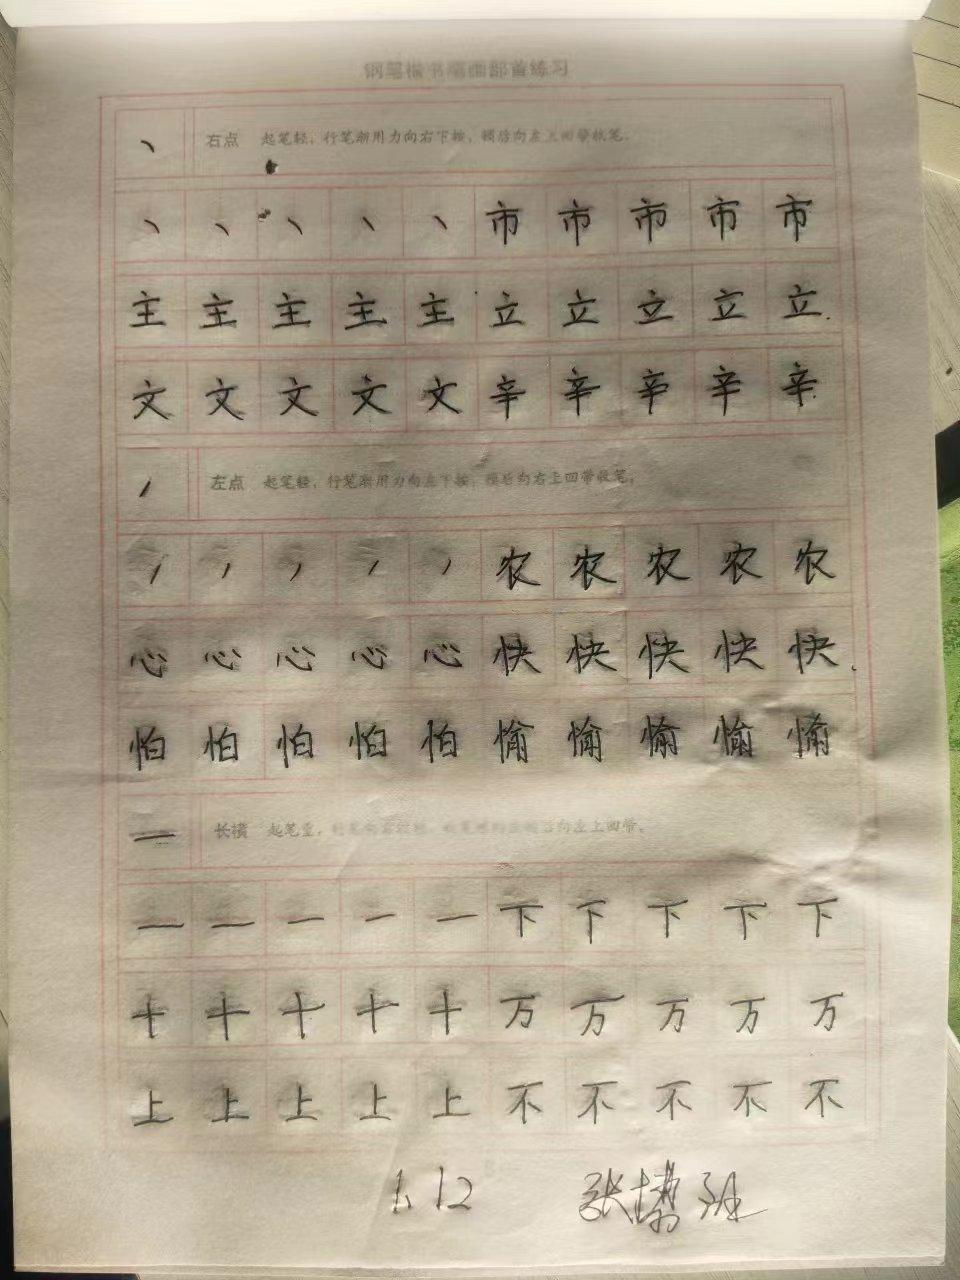 钢笔楷书笔画部首练习
丶 右点 起笔轻，行笔渐用力向右下按，顿后向左上回带收笔。
丶 丶 丶 丶 丶 市 市 市 市 市
主 主 主 主 主 立 立 立 立 立
文 文 文 文 文 辛 辛 辛 辛 辛
左点 起笔轻，行笔渐用力向左下按，顿后向右上回带收笔。
农 农 农 农 农
心 心 心 心 心 快 快 快 快 快
怕 怕 怕 怕 怕 愉 愉 愉 愉 愉
一 长横 起笔重，向左上回带。
一 一 一 一 一 下 下 下 下 下
十 十 十 十 十 万 万 万 万 万
上 上 上 上 上 不 不 不 不 不
1.12 张 班